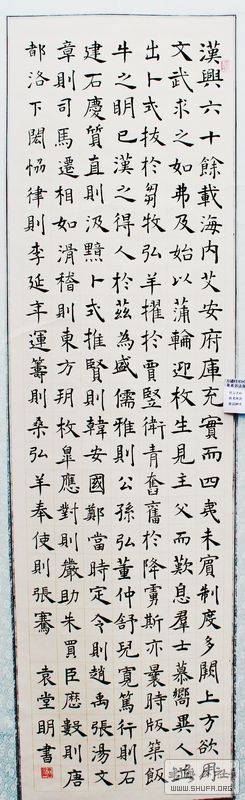 漢興六十餘載海内艾安府庫充實而四夷未賓制度多闕上方欲用
文武求之如弗及始以蒲輪迎枚生見主父而歎息群士慕嚮異人
出卜式拔於芻牧弘羊擢於賈竪衛青奮舊於降虜斯亦曩時版築飯
牛之明已漢之得人於茲為盛儒雅則公孫弘董仲舒兒寬篤行則石
建石慶質直則汲黯卜式推賢則韓安國鄭當時定令則趙禹張湯文
章則司馬遷相如滑稽則東方朔枚皐應對則嚴助朱買臣歷數則唐
都洛下閎恊律則李延年運籌則桑弘羊奉使則張騫 袁堂明書
WWW.SHUFA.COM